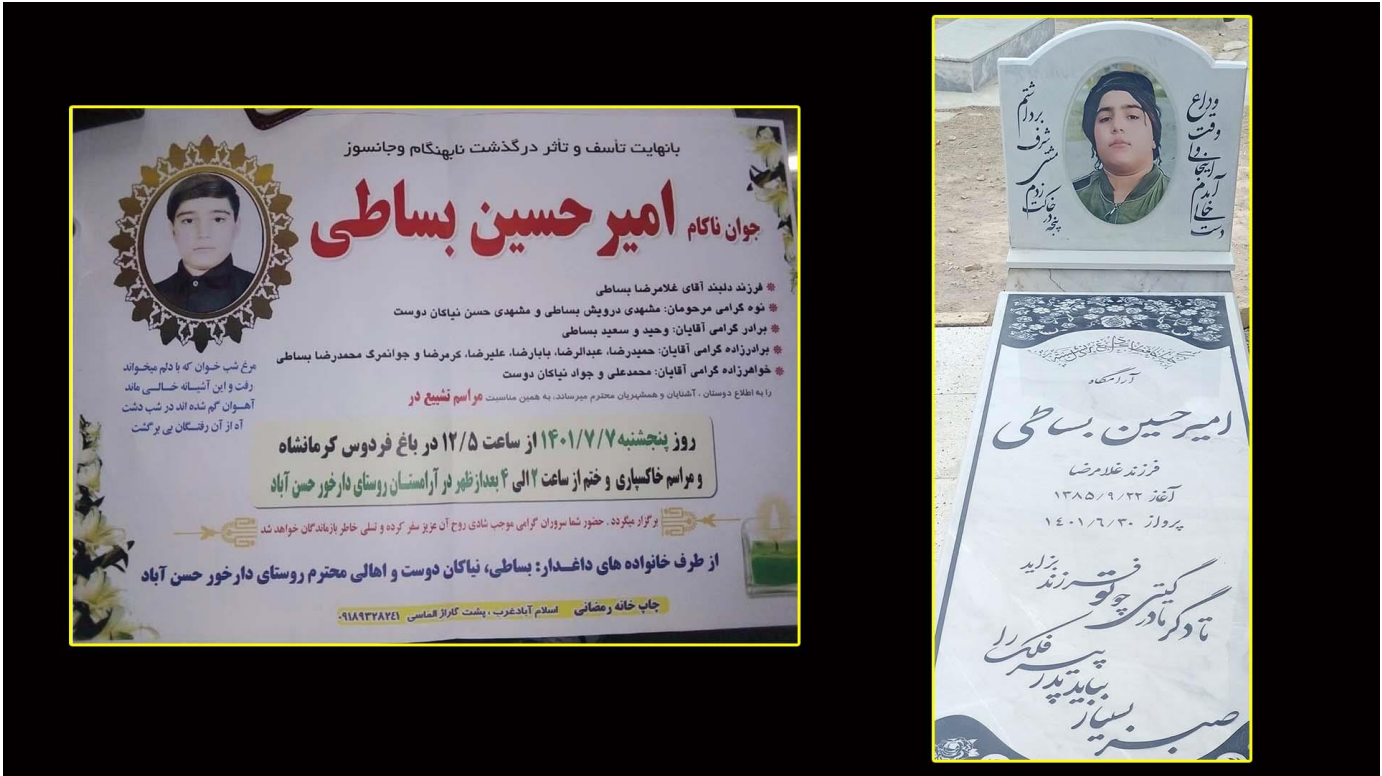 بانهایت تأسف و تأثر درگذشت نابهنگام وجانسوز
جوان ناکام امیرحسین بساطی
فرزند دلبند آقای غلامرضا بساطی
نوه گرامی مرحومان: مشهدی درویش بساطی و مشهدی حسن نیاکان دوست
برادر گرامی آقایان: وحید و سعید بساطی
برادرزاده گرامی آقایان: حمیدرضا، عبدالرضا، بابارضا، علیرضا، کرمرضا و جوانمرگ محمدرضا بساطی
خواهرزاده گرامی آقایان: محمدعلی و جواد نیاکان دوست
را به اطلاع دوستان ، آشنایان و همشهریان محترم میرساند، به همین مناسبت مراسم تشییع در
روز پنجشنبه ۱۴۰۱/۷/۷ از ساعت ۱۲/۵ در باغ فردوس کرمانشاه
و مراسم خاکسپاری و ختم از ساعت ۲ الی ۴ بعدازظهر در آرامستان روستای دارخور حسن آباد
برگزار میگردد . حضور شما سروران گرامی موجب شادی روح آن عزیز سفر کرده و تسلی خاطر بازماندگان خواهد شد
از طرف خانواده های داغدار: بساطی، نیاکان دوست و اهالی محترم روستای دارخور حسن آباد
چاپ خانه رمضانی اسلام آبادغرب ، پشت گاراژ الماسی ۰۹۱۸۹۳۲۸۲۴۱
مرغ شب خوان که با دلم میخواند
رفت و این آشیانه خالی ماند
آهوان گم شده اند در شب دشت
آه از آن رفتگان بی برگشت
دست خالی آمدم اینجا و وقت وداع
پنجه در خاکت زدم مشتی شرف برداشتم
آرامگاه
امیرحسین بساطی
فرزند غلامرضا
آغاز ۱۳۸۵/۹/۲۲
پرواز ۱۴۰۱/۶/۳۰
تا دگر مادر گیتی چو تو فرزند بزاید
صبر بسیار بباید پدر پیر فلک را